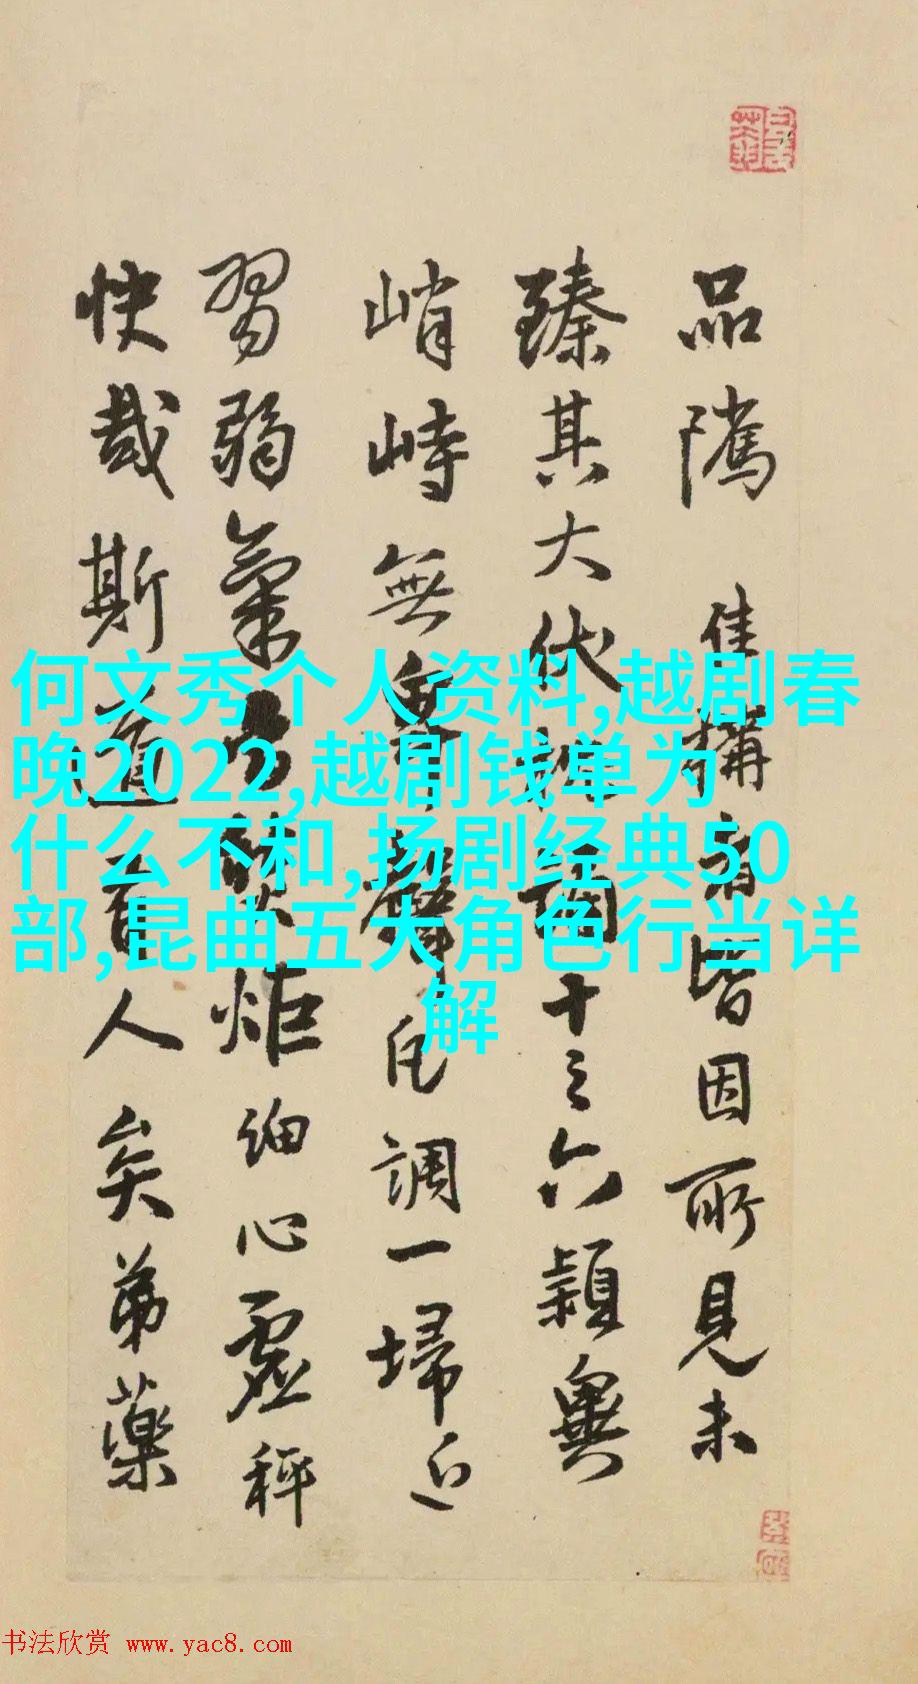 品隲佳搆皆因所見未
臻其大伏摘十之六穎
峭峙無聲調一埽近
習弱氣炬細心虛秤
快哉斯道有人矣弟藥
何文秀个人资料,越剧春
晚2022,越剧钱单为
什么不和,扬剧经典50
部,昆曲五大角色行当详
解
书法欣赏 www.yac8.com